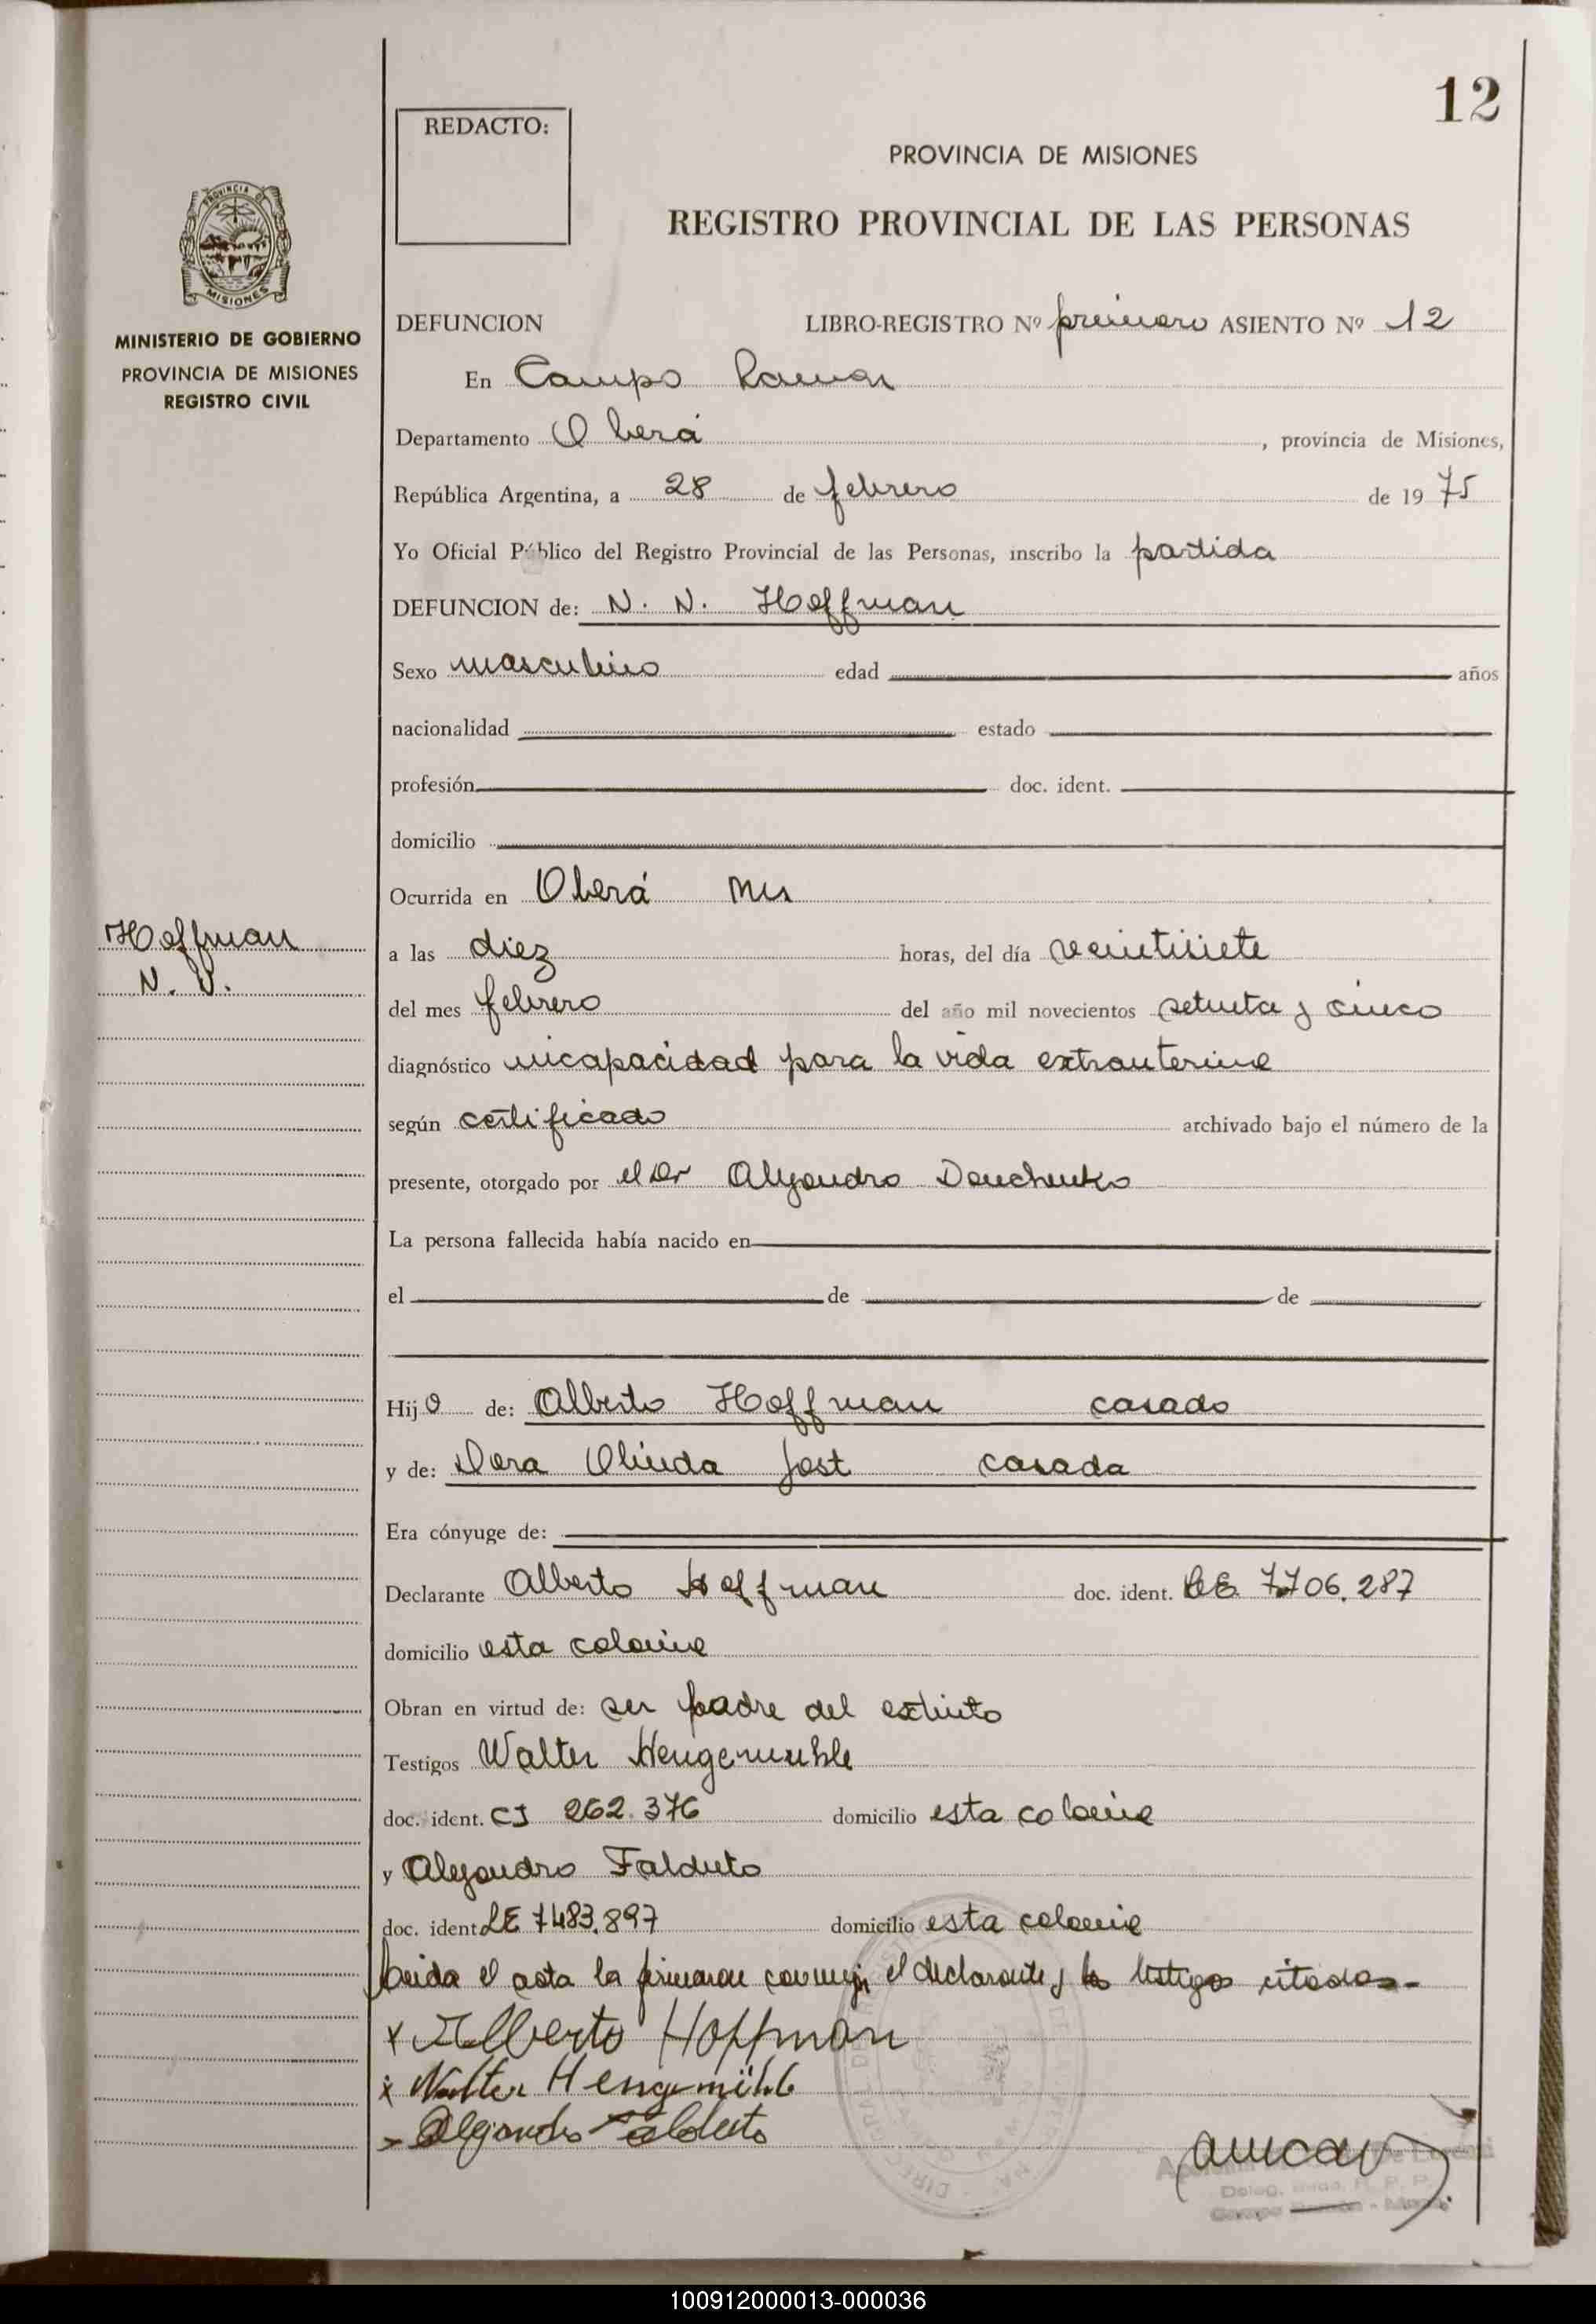 12
REDACTO:
PROVINCIA DE MISIONES
REGISTRO PROVINCIAL DE LAS PERSONAS
PROVINCIA DE
MISIONES
MINISTERIO DE GOBIERNO
PROVINCIA DE MISIONES
REGISTRO CIVIL
DEFUNCION LIBRO-REGISTRO Nº primero ASIENTO Nº 12
En Campo Ramon
Departamento Oberá, provincia de Misiones,
República Argentina, a 28 de febrero de 1975
Yo Oficial Público del Registro Provincial de las Personas, inscribo la partida
DEFUNCION de: N. N. Hoffman
Sexo masculino edad años
nacionalidad estado
profesión doc. ident.
domicilio
Ocurrida en Oberá Mis
Hoffman
N. N.
a las diez horas, del día veintisiete
del mes febrero del año mil novecientos setenta y cinco
diagnóstico incapacidad para la vida extrauterina
según certificado archivado bajo el número de la
presente, otorgado por el Dr Alejandro Danchenko
La persona fallecida había nacido en
el de de
Hijo de: Alberto Hoffman casado
y de: Dora Olinda Jost casada
Era cónyuge de:
Declarante Alberto Hoffman doc. ident. LE 7.706.287
domicilio esta colonia
Obran en virtud de: ser padre del extinto
Testigos Walter Hengemuhle
doc. ident. CI 262.376 domicilio esta colonia
y Alejandro Falduto
doc. ident LE 7483.897 domicilio esta colonia
Leida el acta la firmaron conmigo el declarante y los testigos citados.-
x Alberto Hoffman
x Walter Hengemühle
x Alejandro Falduto
100912000013-000036